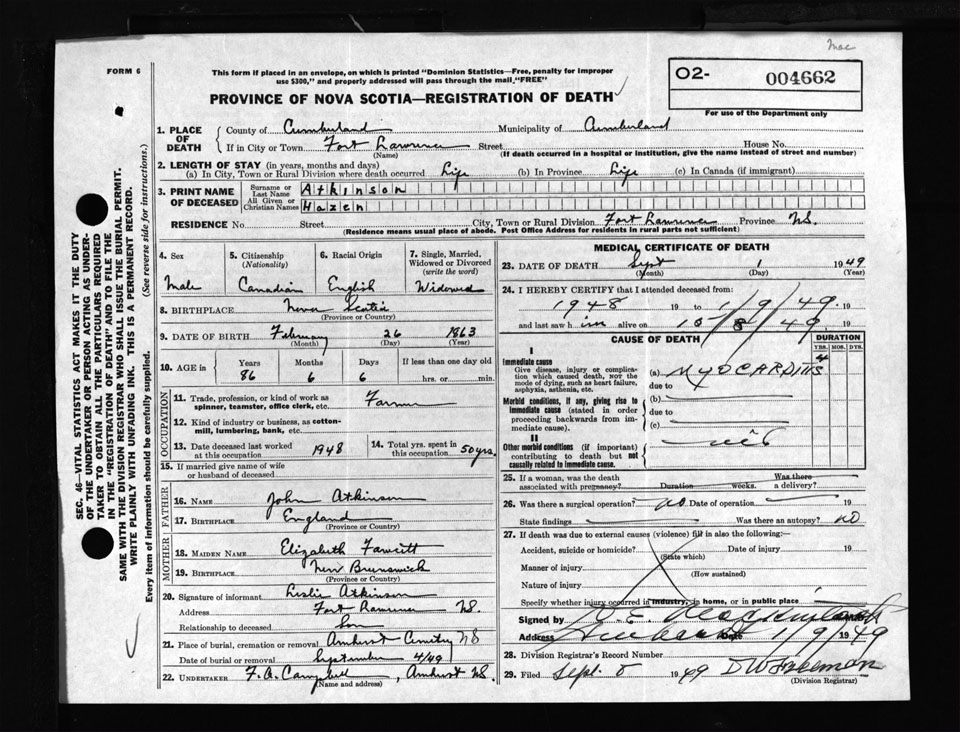 Mac
FORM 6
This form if placed in an envelope, on which is printed "Dominion Statistics—Free, penalty for improper
use $300," and properly addressed will pass through the mail, "FREE"
PROVINCE OF NOVA SCOTIA—REGISTRATION OF DEATH
O2- 004662
For use of the Department only
1. PLACE OF DEATH
County of Cumberland Municipality of Cumberland
If in City or Town Fort Lawrence Street House No.
(Name) (If death occurred in a hospital or institution, give the name instead of street and number)
2. LENGTH OF STAY (in years, months and days)
(a) In City, Town or Rural Division where death occurred Life (b) In Province Life (c) In Canada (if immigrant)
3. PRINT NAME OF DECEASED
Surname or Last Name Atkinson
All Given or Christian Names Hazen
RESIDENCE No. Street City, Town or Rural Division Fort Lawrence Province N.S.
(Residence means usual place of abode. Post Office Address for residents in rural parts not sufficient)
4. Sex Male
5. Citizenship (Nationality) Canadian
6. Racial Origin English
7. Single, Married, Widowed or Divorced (write the word) Widowed
8. BIRTHPLACE Nova Scotia
(Province or Country)
9. DATE OF BIRTH February 26 1863
(Month) (Day) (Year)
10. AGE in Years Months Days If less than one day old
86 6 6 hrs. or min.
OCCUPATION
11. Trade, profession, or kind of work as
spinner, teamster, office clerk, etc. Farmer
12. Kind of industry or business, as cotton-
mill, lumbering, bank, etc.
13. Date deceased last worked
at this occupation 1948
14. Total yrs. spent in
this occupation 50 yrs.
15. If married give name of wife
or husband of deceased
FATHER
16. NAME John Atkinson
17. BIRTHPLACE England
(Province or Country)
MOTHER
18. MAIDEN NAME Elizabeth Fawcett
19. BIRTHPLACE New Brunswick
(Province or Country)
20. Signature of informant Leslie Atkinson
Address Fort Lawrence N.S.
Relationship to deceased Son
21. Place of burial, cremation or removal Amherst Cemetery NS
Date of burial or removal September 4/49
22. UNDERTAKER F. A. Campbell, Amherst N.S.
(Name and address)
MEDICAL CERTIFICATE OF DEATH
23. DATE OF DEATH Sept 1 1949
(Month) (Day) (Year)
24. I HEREBY CERTIFY that I attended deceased from:
1948 19 to 1/9/49 19
and last saw him alive on 15/8/49 19
CAUSE OF DEATH DURATION
YRS. MOS. DYS.
I
Immediate cause
Give disease, injury or complica-
tion which caused death, NOT the
mode of dying, such as heart failure,
asphyxia, asthenia, etc.
(a) MYOCARDITIS 4
due to
Morbid conditions, if any, giving rise to
immediate cause (stated in order
proceeding backwards from im-
mediate cause).
(b)
due to
(c)
II
Other morbid conditions (if important)
contributing to death but not
causally related to immediate cause.
25. If a woman, was the death Was there
associated with pregnancy? Duration weeks. a delivery?
26. Was there a surgical operation? no Date of operation 19
State findings Was there an autopsy? NO
27. If death was due to external causes (violence) fill in also the following:—
Accident, suicide or homicide? Date of injury 19
(State which)
Manner of injury
(How sustained)
Nature of injury
Specify whether injury occurred in industry, in home, or in public place
Signed by
Address Date 1/9/1949
28. Division Registrar's Record Number
29. Filed Sept. 8 1949 D W Freeman
(Division Registrar)
SEC. 46—VITAL STATISTICS ACT MAKES IT THE DUTY
OF THE UNDERTAKER OR PERSON ACTING AS UNDER-
TAKER TO OBTAIN ALL THE PARTICULARS REQUIRED
IN THE "REGISTRATION OF DEATH" AND TO FILE THE
SAME WITH THE DIVISION REGISTRAR WHO SHALL ISSUE THE BURIAL PERMIT.
WRITE PLAINLY WITH UNFADING INK. THIS IS A PERMANENT RECORD.
Every item of information should be carefully supplied. (See reverse side for instructions.)